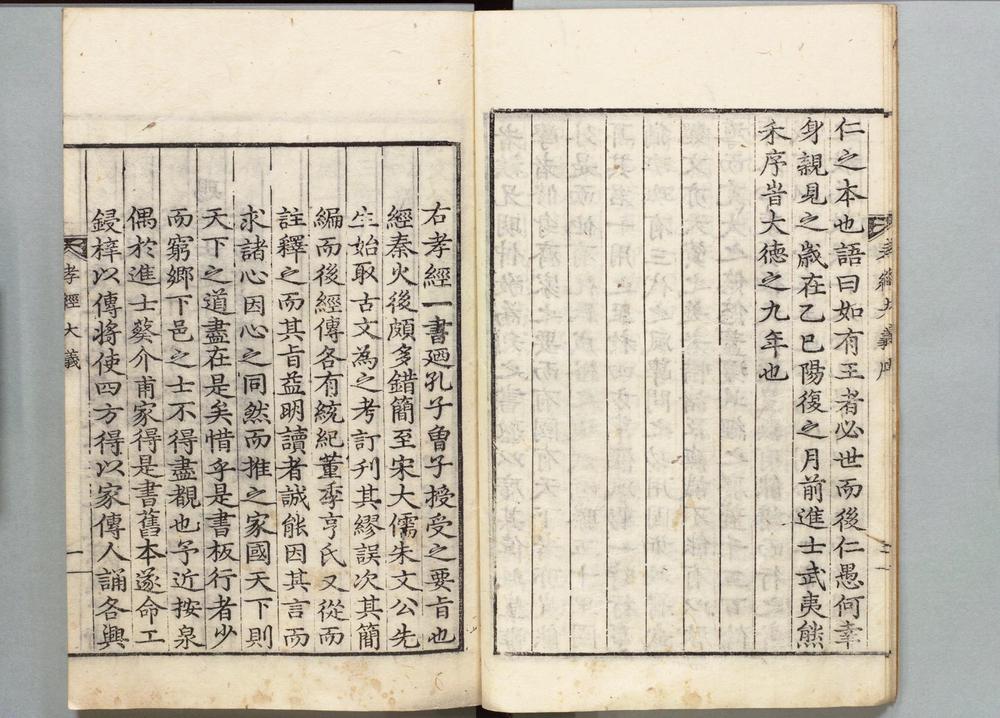 仁之本也語曰如有王者必世而後仁愚何幸
身親見之歲在乙巳陽復之月前進士武夷熊
禾序旹大德之九年也
右孝經一書廼孔子曾子授受之要旨也
經秦火後頗多錯簡至宋大儒朱文公先
生始取古文為之考訂刊其繆誤次其簡
編而後經傳各有統紀董季亨氏又從而
註釋之而其旨益明讀者誠能因其言而
求諸心因心之同然而推之家國天下則
天下之道盡在是矣惜乎是書板行者少
而窮鄉下邑之士不得盡覩也予近按泉
偶於進士蔡介甫家得是書舊本遂命工
鋟梓以傳將使四方得以家傳人誦各興
孝經大義 一